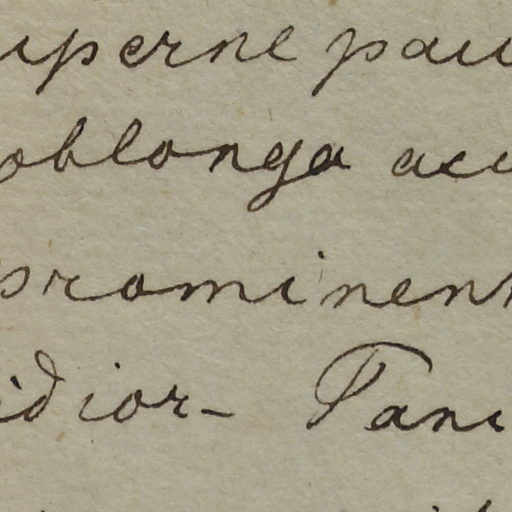 uperne pau
oblonga acu
prominent
idior- Pani